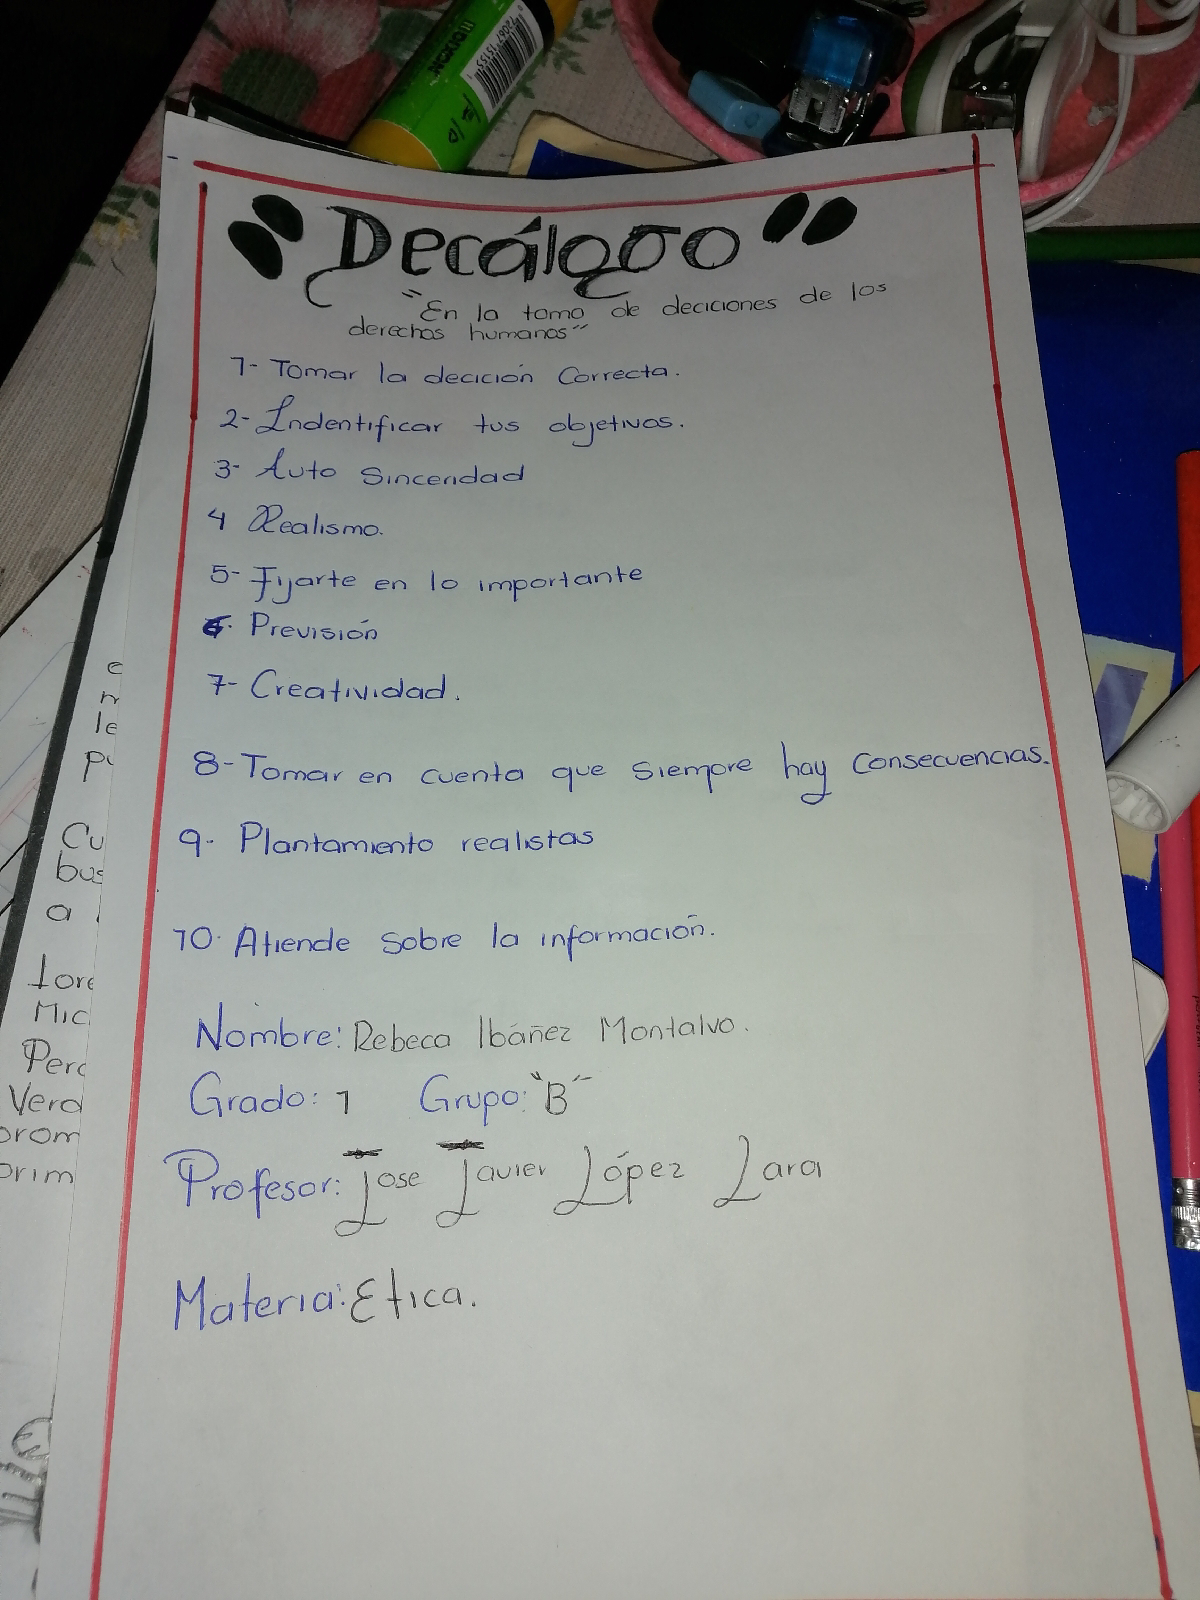 "Decálogo"
"En la toma de deciciones de los
derechos humanos"
1- Tomar la decición Correcta.
2- Indentificar tus objetivos.
3- Auto Sinceridad
4 Realismo.
5- Fijarte en lo importante
6- Previsión
7- Creatividad.
8- Tomar en cuenta que siempre hay consecuencias.
9- Plantamiento realistas
10. Atiende sobre la información.
Nombre: Rebeca Ibáñez Montalvo.
Grado: 1 Grupo: "B"
Profesor: Jose Javier López Lara
Materia: Etica.
e
le
Cu
bus
a
Mic
Perc
Verd
prom
prim